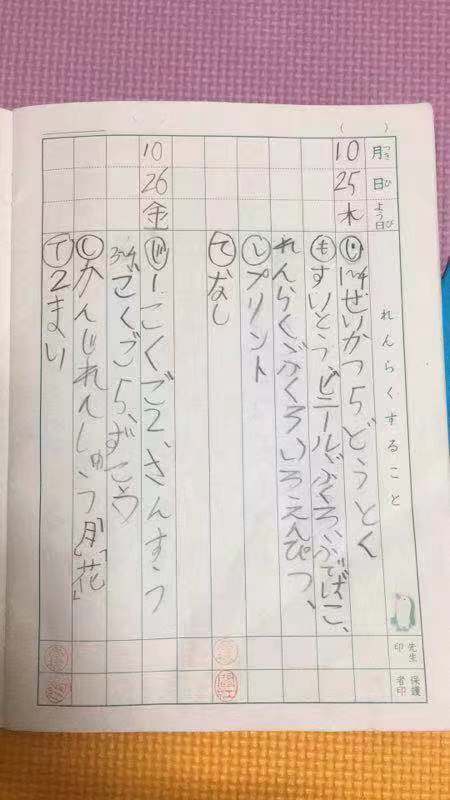 月 日 よう日 れんらくすること 先生印 保護者印
10 25 木 じ 1~4せいかつ5どうとく
も すいとう、ビニールぶくろ、ふでばこ、
れんらくぶくろ いろえんぴつ、
し プリント
て なし
10 26 金 じ 1こくご2、さんすう
3~4こくご5、ずこう
し かんじれんしゅう「月」「花」
て 2まい